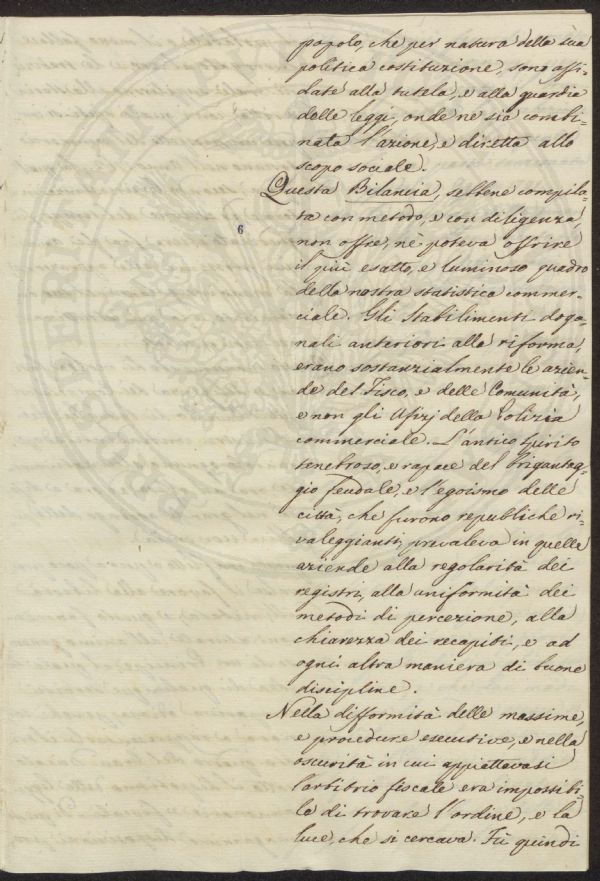 popolo, che per natura della sua
politica costituzione, sono affi=
date alla tutela, e alla guardia
delle leggi, onde ne sia combi=
nata l'azione, e diretta allo
scopo sociale.
Questa Bilancia, sebbene compila=
ta con metodo, e con diligenza,
6
non offre, nè poteva offrire
il più esatto, e luminoso quadro
della nostra statistica commer=
ciale. Gli Stabilimenti doga=
nali anteriori alla riforma,
erano sostanzialmente le azien=
de del Fisco, e delle Comunità,
e non gli Ufizj della Polizia
commerciale. L'antico spirito
tenebroso, e rapace del brigantag=
gio feudale, e l'egoismo delle
città, che furono republiche ri=
valeggianti, prevaleva in quelle
aziende alla regolarità dei
registri, alla uniformità dei
metodi di percezione, alla
chiarezza dei recapiti, e ad
ogni altra maniera di buone
discipline.
Nella difformità delle massime,
e procedure esecutive, e nella
oscurità in cui appiattavasi
l'arbitrio fiscale era impossibi=
le di trovare l'ordine, e la
luce, che si cercava. Fù quindi